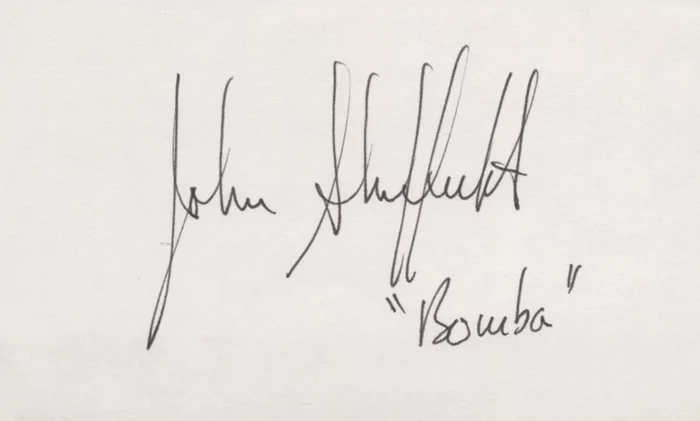 John Sheffield
"Bomba"